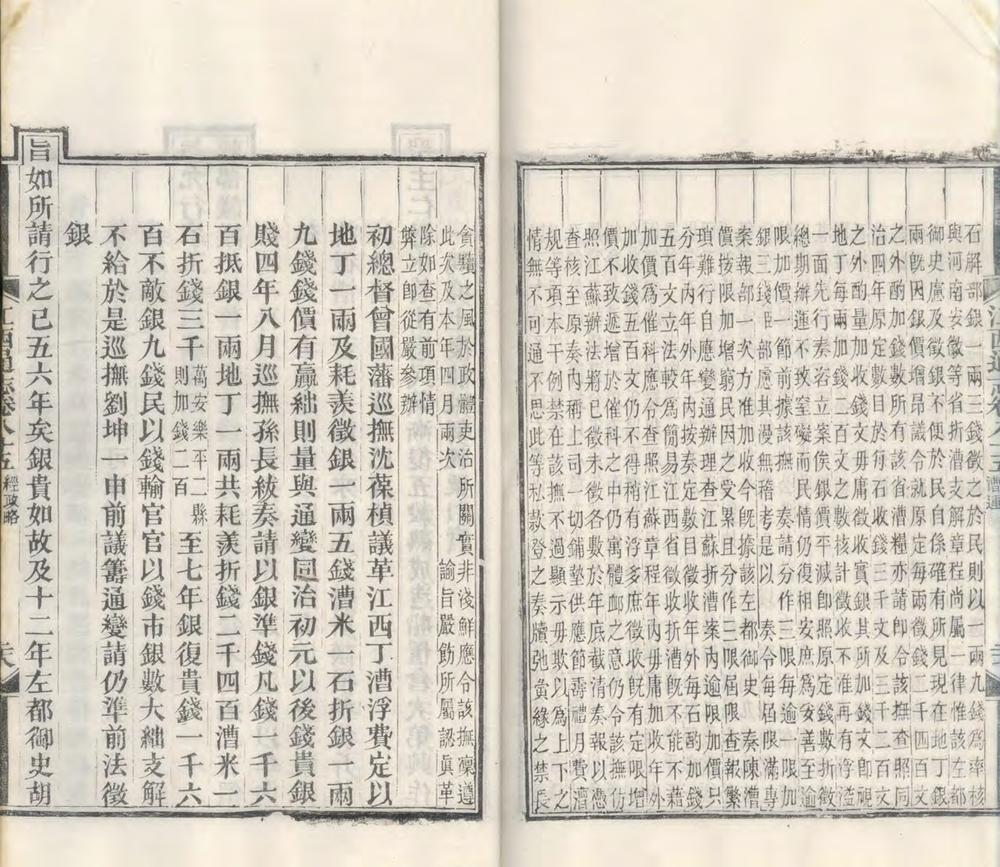 石解部銀一兩三錢徵之於民則以一兩九錢爲率核
與河南安徽等省折漕支解章程尚屬一律惟該左都
御史慮及徵銀不便於民自係確有所見現在地丁銀
兩旣因銀價增昂議令就原定每兩徵錢二千四百文
之外酌加錢數所有該省漕糧亦請卽令該撫查照同
治四年原定數目於每石收錢三千文及三千二百文
之外酌量加收錢文毋庸徵收實銀其所加錢文卽視
地丁每兩加錢二百文之數核計徵收不准再有浮溢
一面先行奏咨立案俟銀價平減卽照原定錢數折徵
總期辦運不致窒礙而民情仍復相安庶爲妥善至逾
限加價一節前據該撫奏請分作三限每逾一限加
銀三錢臣部慮其漫無稽考是以奏令每屆限滿專
案報部一次方准加收今旣據該左都御史奏陳漕
價按限增加窮民因之受累且分作三限屆限查報繁
瑣難行自應變通辦理查江蘇折漕案內逾限加價只
分年內年外年內按定數目徵收年外每石酌加錢
五百文立法較爲簡易江西省徵收折漕旣不能不藉
加價爲催科應令查照江蘇章程年內毋庸加收年外
加收錢五百文仍不得稍有浮多庶徵收旣有定限增
價不致遞增於催科之中仍寓體血之意仍令該撫仿
照江蘇辦法將已徵未徵各數於年底截清奏報以憑
查核至原奏內稱上司一切鋪墊供應節壽月費
規等項本干例禁在該撫不過顯示毋欺以爲上下之
情無不可通不思此等私款登之奏牘弛夤緣之禁長
貪黷之風於政體吏治所關實非淺鮮應令該撫稟遵
此次及本年四月兩次 諭旨嚴飭所屬認眞革
除如查有前項情
弊立卽從嚴參辦
初總督曾國藩巡撫沈葆楨議革江西丁漕浮費定以
地丁一兩及耗羨徵銀一兩五錢漕米一石折銀一兩
九錢錢價有贏絀則量與通變同治初元以後錢貴銀
賤四年八月巡撫孫長紱奏請以銀準錢凡錢一千六
百抵銀一兩地丁一兩共耗羨折錢二千四百漕米一
石折錢三千萬安樂平二縣則加錢二百至七年銀復貴錢一千六
百不敵銀九錢民以錢輸官官以錢市銀數大絀支解
不給於是巡撫劉坤一申前議籌通變請仍準前法徵
銀
旨如所請行之已五六年矣銀貴如故及十二年左都御史胡
江西通志卷八十五 經政略